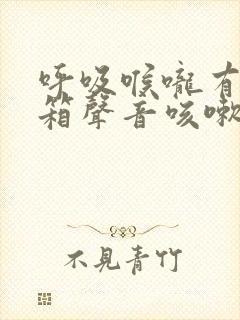 呼吸喉嚨有
箱聲音咳嗽
不見青竹